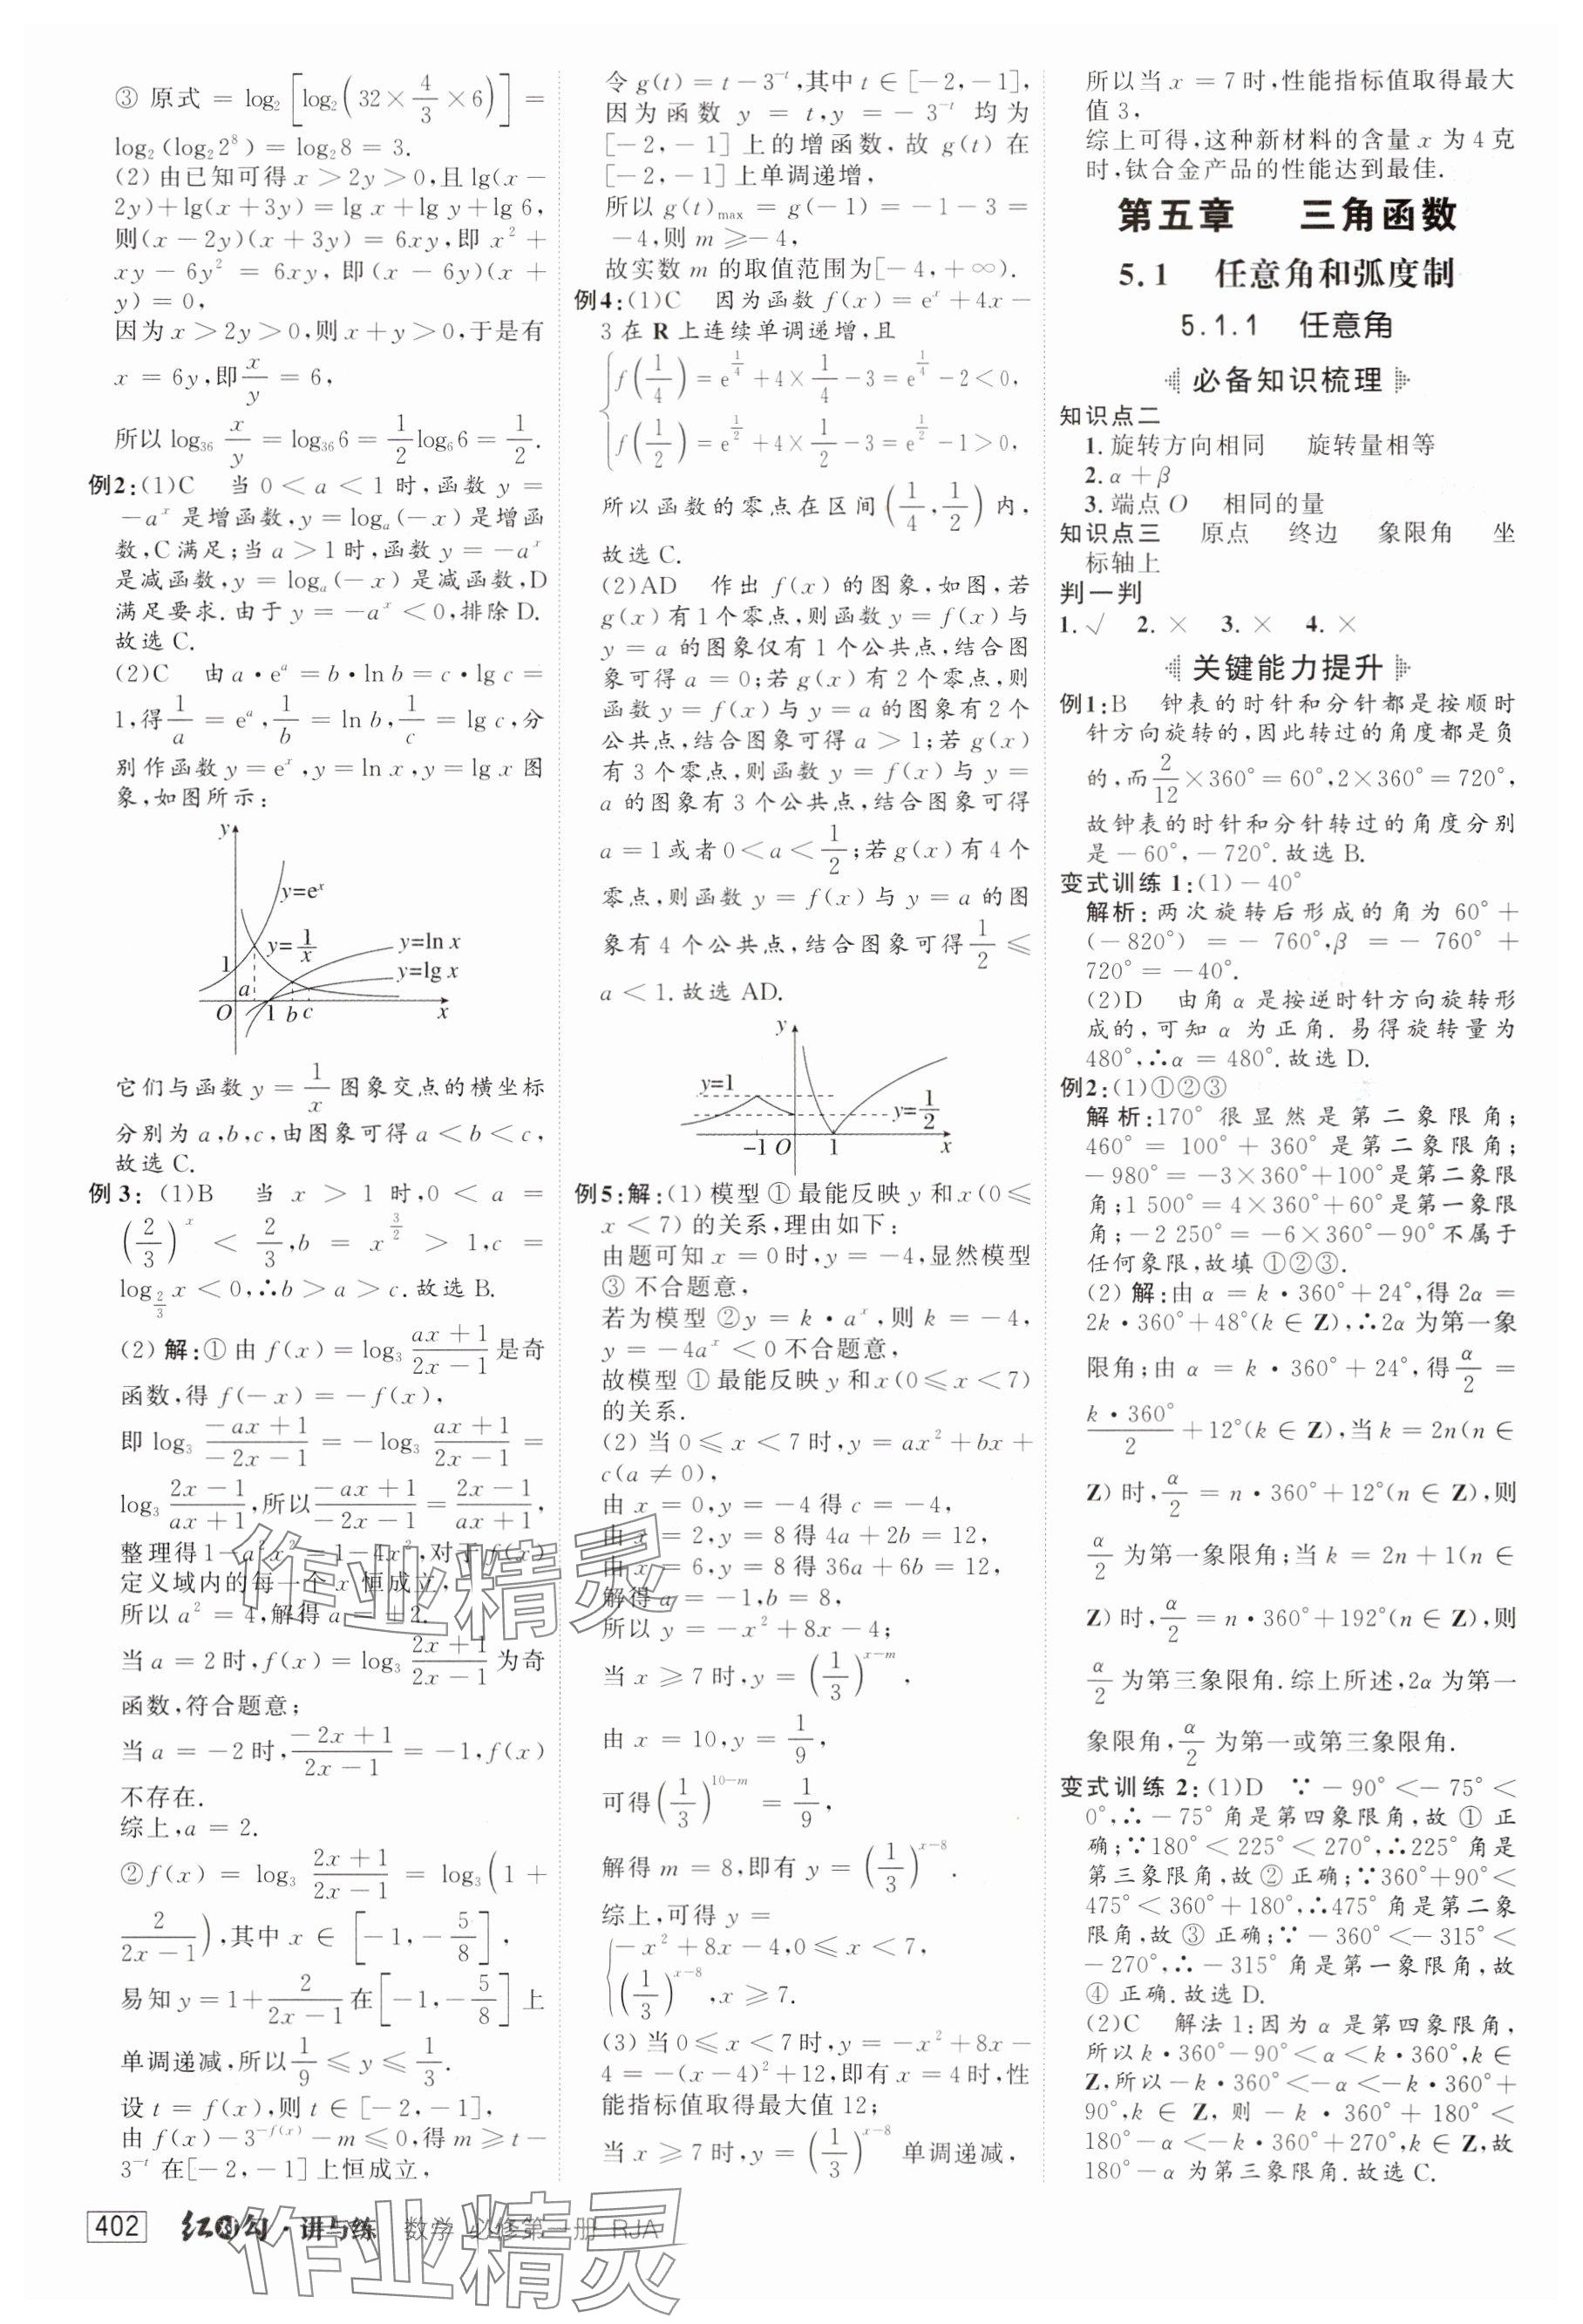 ③ 原式 = log₂[log₂(32×4/3×6)] =
log₂(log₂2⁸) = log₂8 = 3.
(2) 由已知可得 x > 2y > 0,且 lg(x −
2y)+lg(x+3y) = lg x+lg y+lg 6,
则(x−2y)(x+3y) = 6xy,即 x² +
xy − 6y² = 6xy,即(x − 6y)(x +
y) = 0,
因为 x > 2y > 0,则 x+y > 0,于是有
x = 6y,即x/y = 6,
所以 log₃₆ x/y = log₃₆6 = 1/2log₆6 = 1/2.
例2:(1)C 当 0 < a < 1 时,函数 y =
−aˣ 是增函数,y = logₐ(−x)是增函
数,C满足;当 a > 1 时,函数 y = −aˣ
是减函数,y = logₐ(−x) 是减函数,D
满足要求.由于 y = −aˣ < 0,排除 D.
故选 C.
(2)C 由 a·eᵃ = b·ln b = c·lg c =
1,得1/a = eᵃ,1/b = ln b,1/c = lg c,分
别作函数 y = eˣ,y = ln x,y = lg x 图
象,如图所示:
y
y=eˣ
y=1/x
y=ln x
y=lg x
1
a
O 1 b c x
它们与函数 y = 1/x 图象交点的横坐标
分别为 a,b,c,由图象可得 a < b < c,
故选 C.
例3:(1)B 当 x > 1 时,0 < a =
(2/3)ˣ < 2/3,b = x^(3/2) > 1,c =
log_(2/3) x < 0,∴b > a > c.故选 B.
(2) 解:① 由 f(x) = log₃ (ax+1)/(2x−1)是奇
函数,得 f(−x) = −f(x),
即 log₃ (−ax+1)/(−2x−1) = −log₃ (ax+1)/(2x−1) =
log₃ (2x−1)/(ax+1),所以(−ax+1)/(−2x−1) = (2x−1)/(ax+1),
整理得1−a²x² = 1−4x²,对于 f(x)
定义域内的每一个 x 恒成立,
所以 a² = 4,解得 a = ±2.
当 a = 2 时,f(x) = log₃ (2x+1)/(2x−1)为奇
函数,符合题意;
当 a = −2 时,(−2x+1)/(2x−1) = −1,f(x)
不存在.
综上,a = 2.
② f(x) = log₃ (2x+1)/(2x−1) = log₃(1 +
2/(2x−1)),其中 x ∈ [−1,−5/8],
易知 y = 1+2/(2x−1)在[−1,−5/8]上
单调递减,所以1/9 ⩽ y ⩽ 1/3.
设 t = f(x),则 t ∈ [−2,−1],
由 f(x)−3^(−f(x))−m ⩽ 0,得 m ⩾ t −
3⁻ᵗ 在[−2,−1]上恒成立,
令 g(t) = t−3⁻ᵗ,其中 t ∈ [−2,−1],
因为函数 y = t,y = −3⁻ᵗ 均为
[−2,−1]上的增函数,故 g(t) 在
[−2,−1]上单调递增,
所以 g(t)max = g(−1) = −1−3 =
−4,则 m ⩾ −4,
故实数 m 的取值范围为[−4,+∞).
例4:(1)C 因为函数 f(x) = eˣ+4x−
3 在 R 上连续单调递增,且
f(1/4) = e^(1/4)+4×1/4−3 = e^(1/4)−2 < 0,
f(1/2) = e^(1/2)+4×1/2−3 = e^(1/2)−1 > 0,
所以函数的零点在区间(1/4,1/2)内,
故选 C.
(2)AD 作出 f(x) 的图象,如图,若
g(x)有1个零点,则函数 y = f(x)与
y = a 的图象仅有1个公共点,结合图
象可得 a = 0;若 g(x)有2个零点,则
函数 y = f(x)与 y = a 的图象有2个
公共点,结合图象可得 a > 1;若 g(x)
有3个零点,则函数 y = f(x)与 y =
a 的图象有3个公共点,结合图象可得
a = 1 或者 0 < a < 1/2;若 g(x)有4个
零点,则函数 y = f(x)与 y = a 的图
象有4个公共点,结合图象可得1/2 ⩽
a < 1.故选 AD.
y
y=1
y=1/2
−1 O 1 x
例5:解:(1) 模型①最能反映 y 和 x(0 ⩽
x < 7) 的关系,理由如下:
由题可知 x = 0 时,y = −4,显然模型
③ 不合题意,
若为模型 ②y = k·aˣ,则 k = −4,
y = −4aˣ < 0 不合题意,
故模型①最能反映 y 和 x(0 ⩽ x < 7)
的关系.
(2) 当 0 ⩽ x < 7 时,y = ax²+bx+
c(a ≠ 0),
由 x = 0,y = −4 得 c = −4,
由 x = 2,y = 8 得 4a+2b = 12,
由 x = 6,y = 8 得 36a+6b = 12,
解得 a = −1,b = 8,
所以 y = −x²+8x−4;
当 x ⩾ 7 时,y = (1/3)^(x−m),
由 x = 10,y = 1/9,
可得(1/3)^(10−m) = 1/9,
解得 m = 8,即有 y = (1/3)^(x−8).
综上,可得 y =
−x²+8x−4,0 ⩽ x < 7,
(1/3)^(x−8),x ⩾ 7.
(3) 当 0 ⩽ x < 7 时,y = −x²+8x−
4 = −(x−4)²+12,即有 x = 4 时,性
能指标值取得最大值 12;
当 x ⩾ 7 时,y = (1/3)^(x−8) 单调递减,
所以当 x = 7 时,性能指标值取得最大
值 3,
综上可得,这种新材料的含量 x 为 4 克
时,钛合金产品的性能达到最佳.
第五章 三角函数
5.1 任意角和弧度制
5.1.1 任意角
必备知识梳理
知识点二
1.旋转方向相同 旋转量相等
2.α+β
3.端点 O 相同的量
知识点三 原点 终边 象限角 坐
标轴上
判一判
1.√ 2.× 3.× 4.×
关键能力提升
例1:B 钟表的时针和分针都是按顺时
针方向旋转的,因此转过的角度都是负
的,而2/12×360° = 60°,2×360° = 720°,
故钟表的时针和分针转过的角度分别
是 −60°,−720°.故选 B.
变式训练1:(1)−40°
解析:两次旋转后形成的角为 60°+
(−820°) = −760°,β = −760°+
720° = −40°.
(2)D 由角 α 是按逆时针方向旋转形
成的,可知 α 为正角.易得旋转量为
480°,∴α = 480°.故选 D.
例2:(1)①②③
解析:170° 很显然是第二象限角;
460° = 100°+360° 是第二象限角;
−980° = −3×360°+100°是第二象限
角;1 500° = 4×360°+60°是第一象限
角;−2 250° = −6×360°−90°不属于
任何象限,故填 ①②③.
(2) 解:由 α = k·360°+24°,得 2α =
2k·360°+48°(k ∈ Z),∴2α 为第一象
限角;由 α = k·360°+24°,得α/2 =
k·360°/2+12°(k ∈ Z),当 k = 2n(n ∈
Z)时,α/2 = n·360°+12°(n ∈ Z),则
α/2 为第一象限角;当 k = 2n+1(n ∈
Z)时,α/2 = n·360°+192°(n ∈ Z),则
α/2为第三象限角.综上所述,2α 为第一
象限角,α/2 为第一或第三象限角.
变式训练2:(1)D ∵ −90° < −75° <
0°,∴ −75° 角是第四象限角,故 ① 正
确;∵180° < 225° < 270°,∴225° 角是
第三象限角,故 ② 正确;∵360°+90° <
475° < 360°+180°,∴475° 角是第二象
限角,故 ③ 正确;∵ −360° < −315° <
−270°,∴ −315° 角是第一象限角,故
④ 正确.故选 D.
(2)C 解法 1:因为 α 是第四象限角,
所以 k·360°−90° < α < k·360°,k ∈
Z,所以 −k·360° < −α < −k·360°+
90°,k ∈ Z,则 −k·360°+180° <
180°−α < −k·360°+270°,k ∈ Z,故
180°−α 为第三象限角.故选 C.
402 红对勾·讲与练 数学 必修第一册 RJA
作业精灵
作业精灵